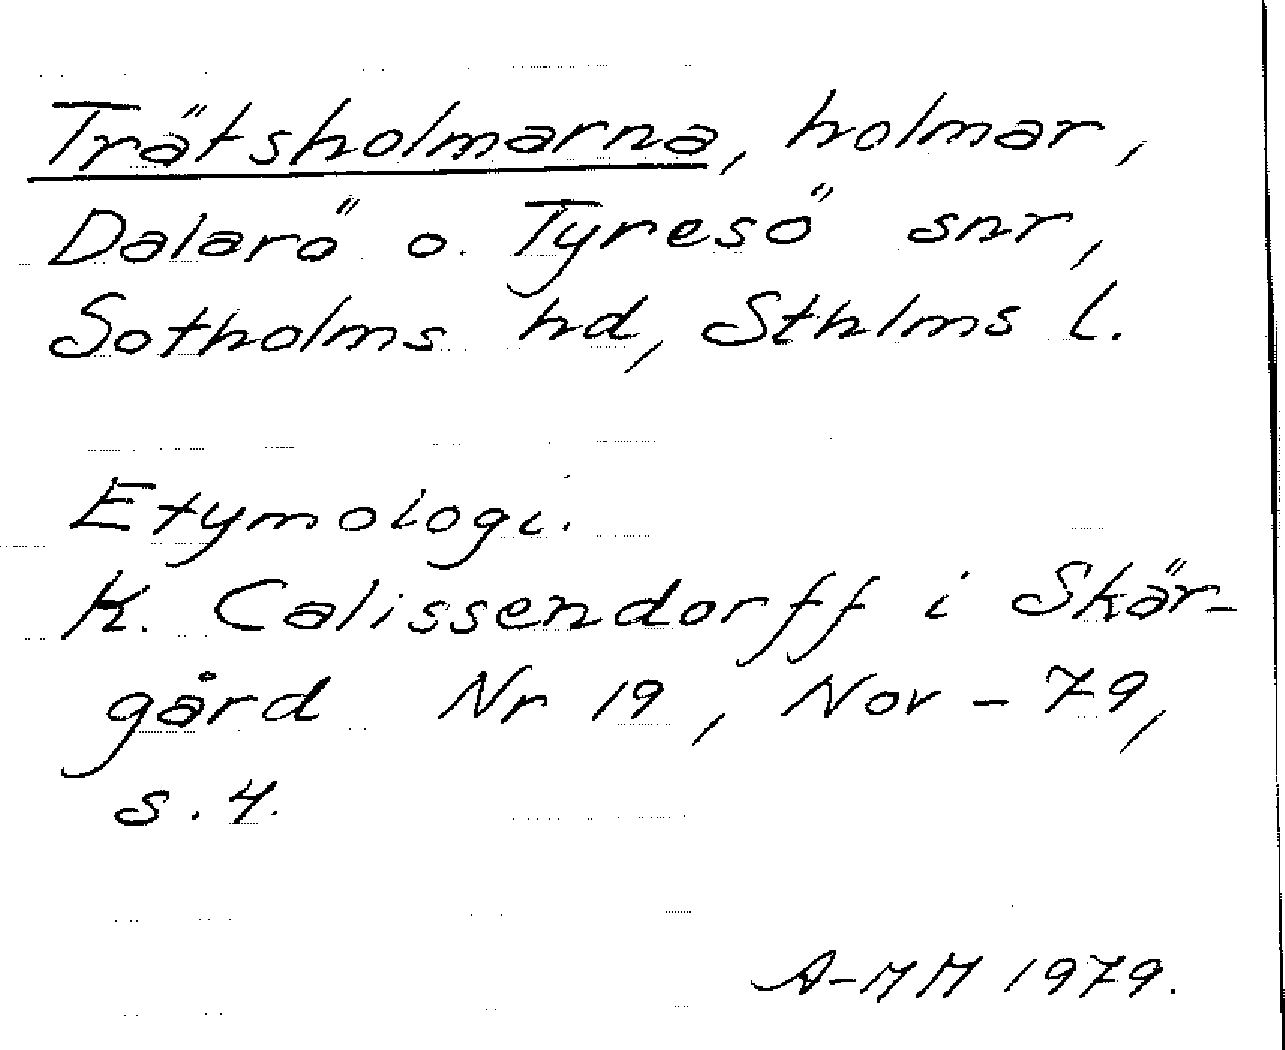 Trätsholmarna, holmar,
Dalarö o. Tyresö snr,
Sotholms hd, Sthlms l.
Etymologi.
K. Calissendorff i Skär-
gård Nr 19, Nov - 79,
s. 4.
A-MM 1979.